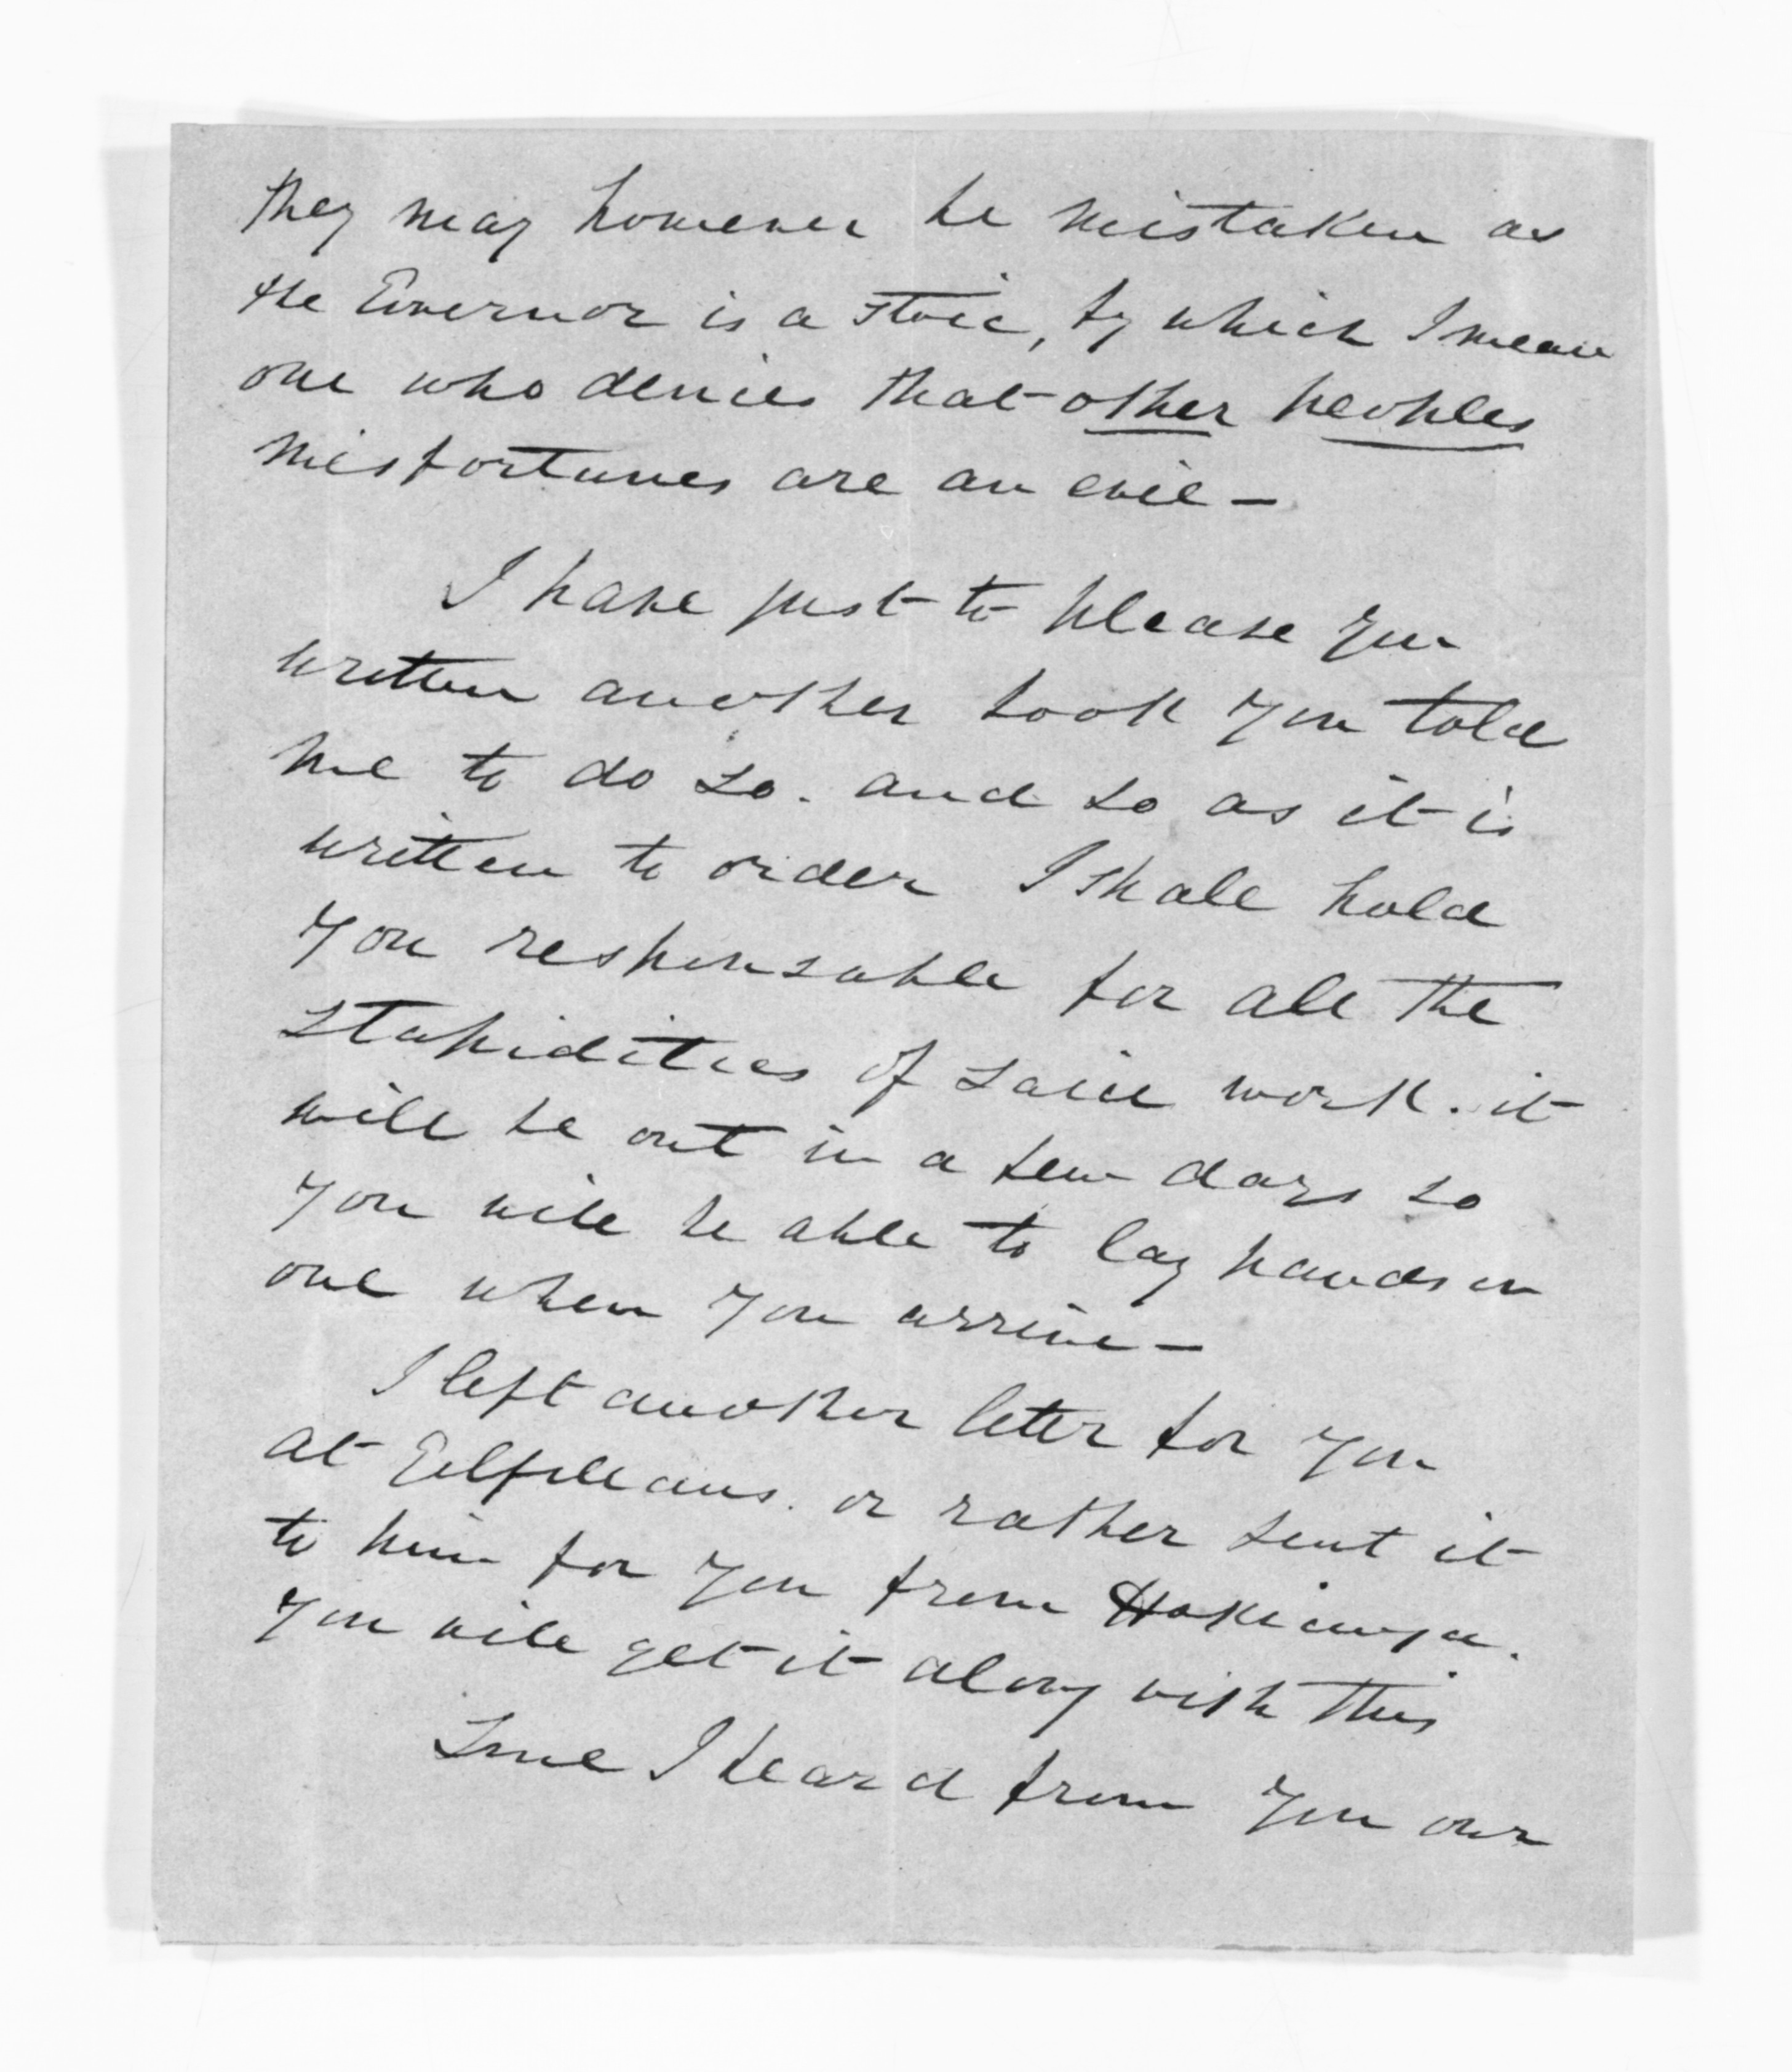 they may however be mistaken as
the Governor is a stoic, by which I mean
one who denies that other peoples
misfortunes are an evil —
I have just to please you
written another book you told
me to do so. and so as it is
written to order I shall hold
you responsable for all the
stupidities of said work. it
will be out in a few days so
you will be able to lay hands on
one when you arrive —
I left another letter for you
at Gilfillans. or rather sent it
to him for you from Hokianga.
you will get it along with this
I heard from you our